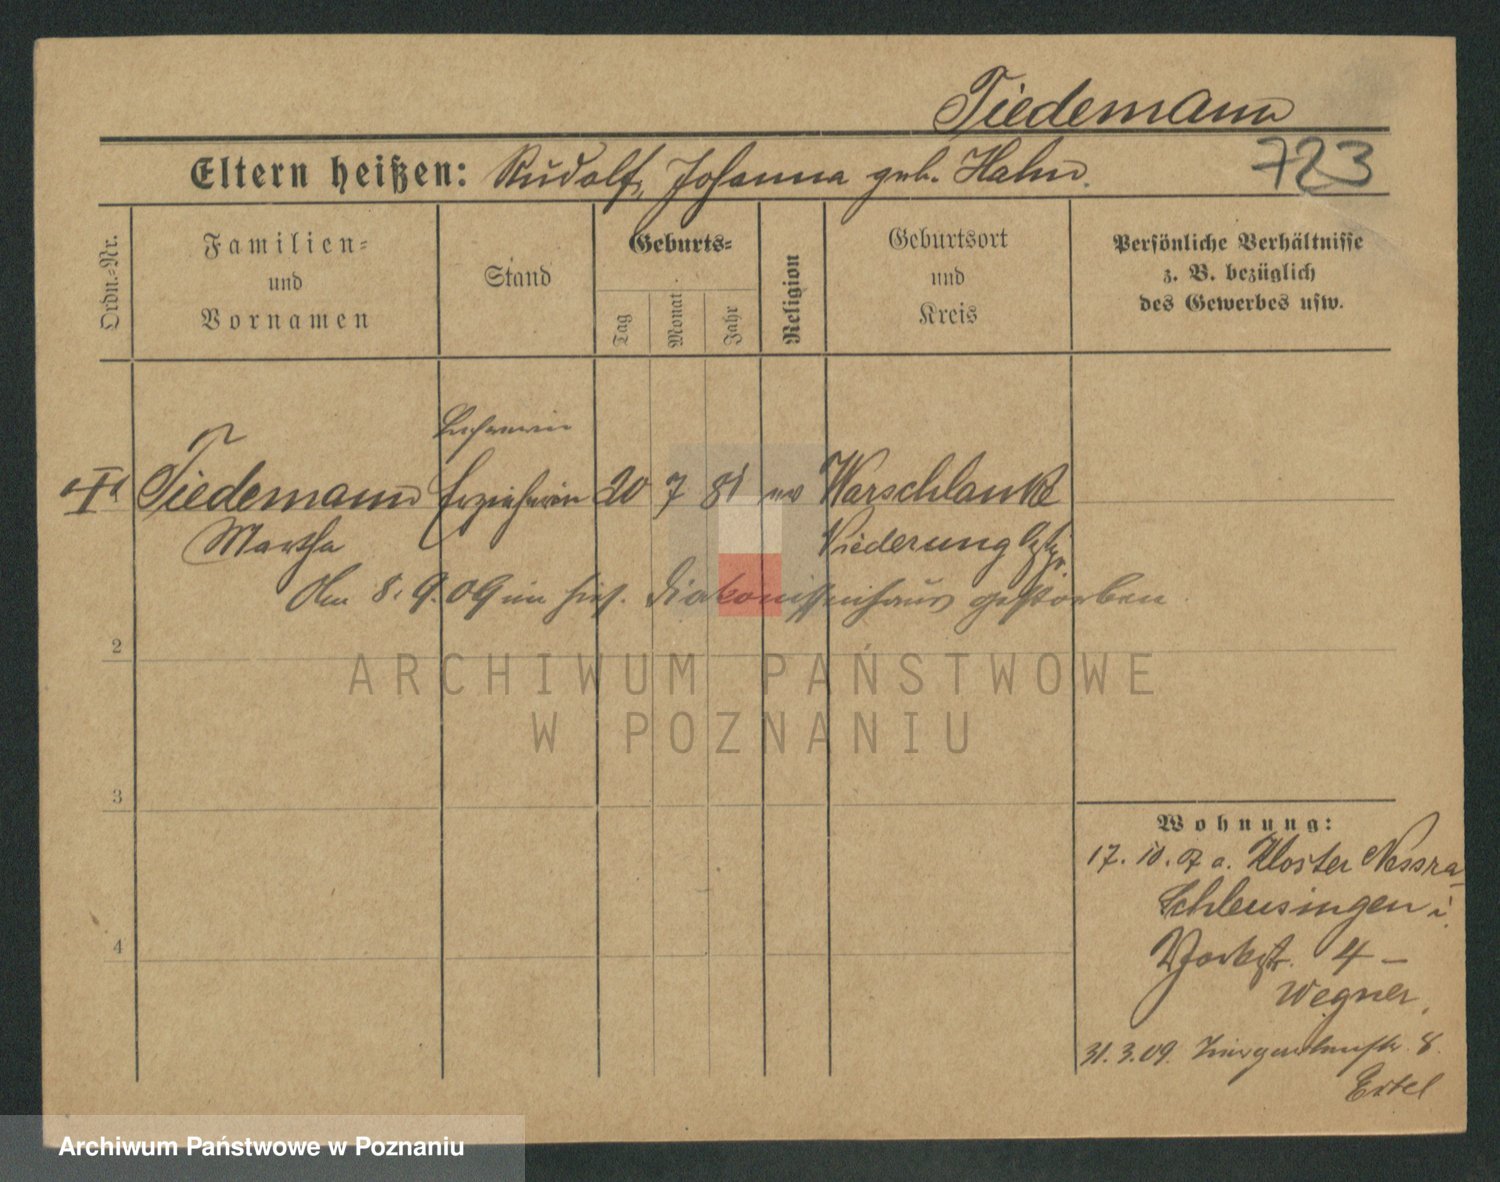 Tiedemann
Eltern heißen: Rudolf, Johanna geb. Hahn.
723
Ordn.-Nr.
Familien- und Vornamen
Stand
Geburts-
Tag
Monat
Jahr
Religion
Geburtsort und Kreis
Persönliche Verhältnisse
z. B. bezüglich
des Gewerbes usw.
Lehrerin
Tiedemann Erzieherin 20 7 81 ev Warschlauke
Martha Niederung
Am 8. 9. 09 im hies. Diakonissenhaus gestorben
2
ARCHIWUM PAŃSTWOWE
W POZNANIU
3
4
Wohnung:
17. 10. 07 a. Kloster Nessra
Schleusingen i.
Yorkstr. 4 –
Wegner,
31. 3. 09. 8.
Ertel
Archiwum Państwowe w Poznaniu